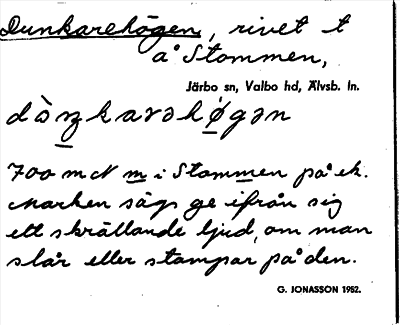 Dunkarehögen, rivet t
å Stommen,
Järbo sn, Valbo hd, Älvsb. ln.
700 m N m i Stommen på ek.
Marken sägs ge ifrån sig
ett skrällande ljud, om man
slår eller stampar på den.
G. JONASSON 1982.